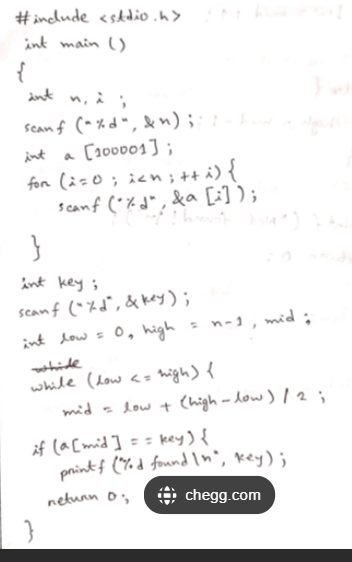 #include <stdio.h>
int main ()
{
int n, i ;
scanf ("%d", &n) ;
int a [100001] ;
for (i=0 ; i<n ; ++i) {
scanf ("%d", &a [i] ) ;
}
int key ;
scanf ("%d", &key) ;
int low = 0, high = n-1, mid ;
while
while (low <= high) {
mid = low + (high - low) / 2 ;
if (a[mid] == key) {
printf ("%d found\n", key) ;
return 0 ;
chegg.com
}